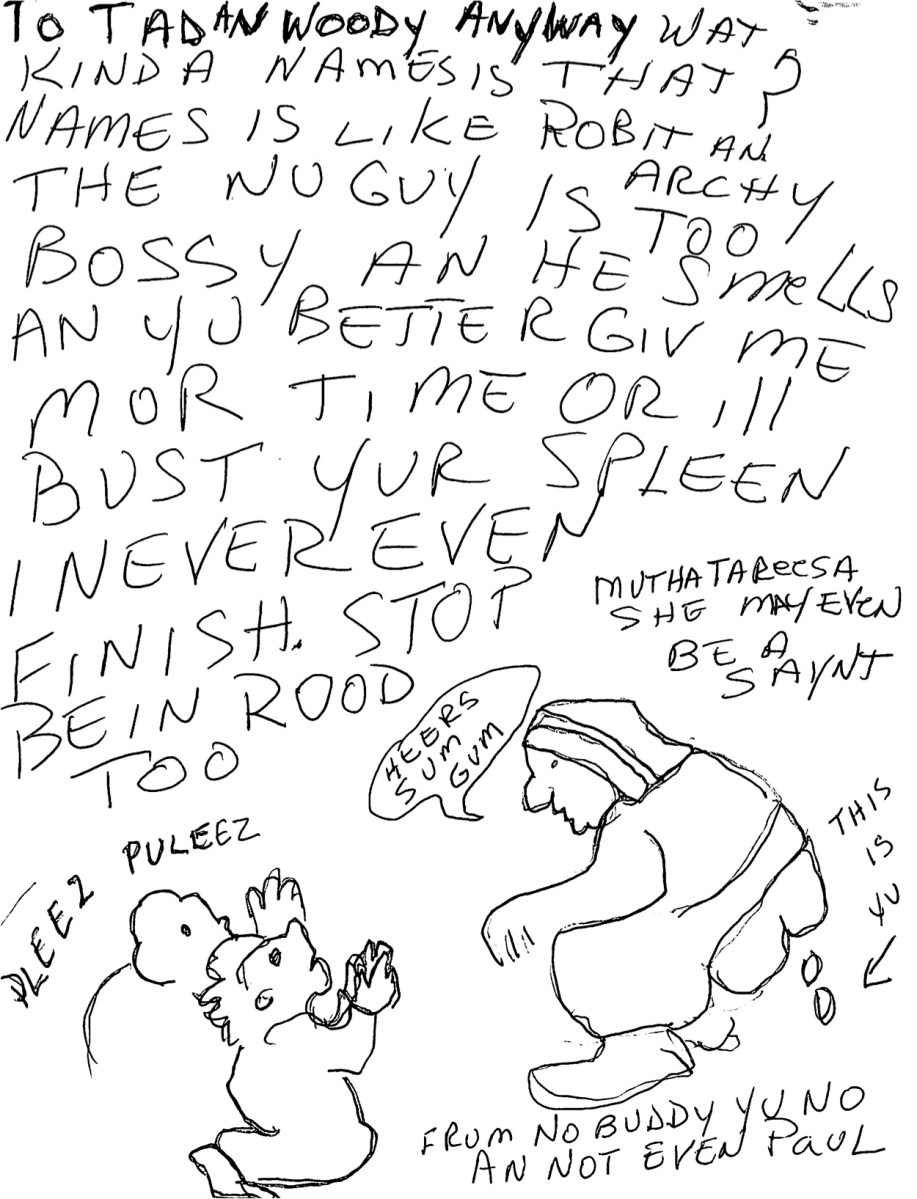 TO TAD AN WOODY ANYWAY WAT
KINDA NAMES IS THAT?
NAMES IS LIKE ROBIT AN
ARCHY
THE NU GUY IS TOO
BOSSY AN HE SMELLS
AN YU BETTER GIV ME
MOR TIME OR ILL
BUST YUR SPLEEN
I NEVER EVEN
FINISH. STOP
BEIN ROOD
TOO
MUTHA TAREESA
SHE MAY EVEN
BE A
SAYNT
HEERS
SUM
GUM
PLEEZ PULEEZ
THIS
IS
YU
FRUM NO BUDDY YU NO
AN NOT EVEN PAUL